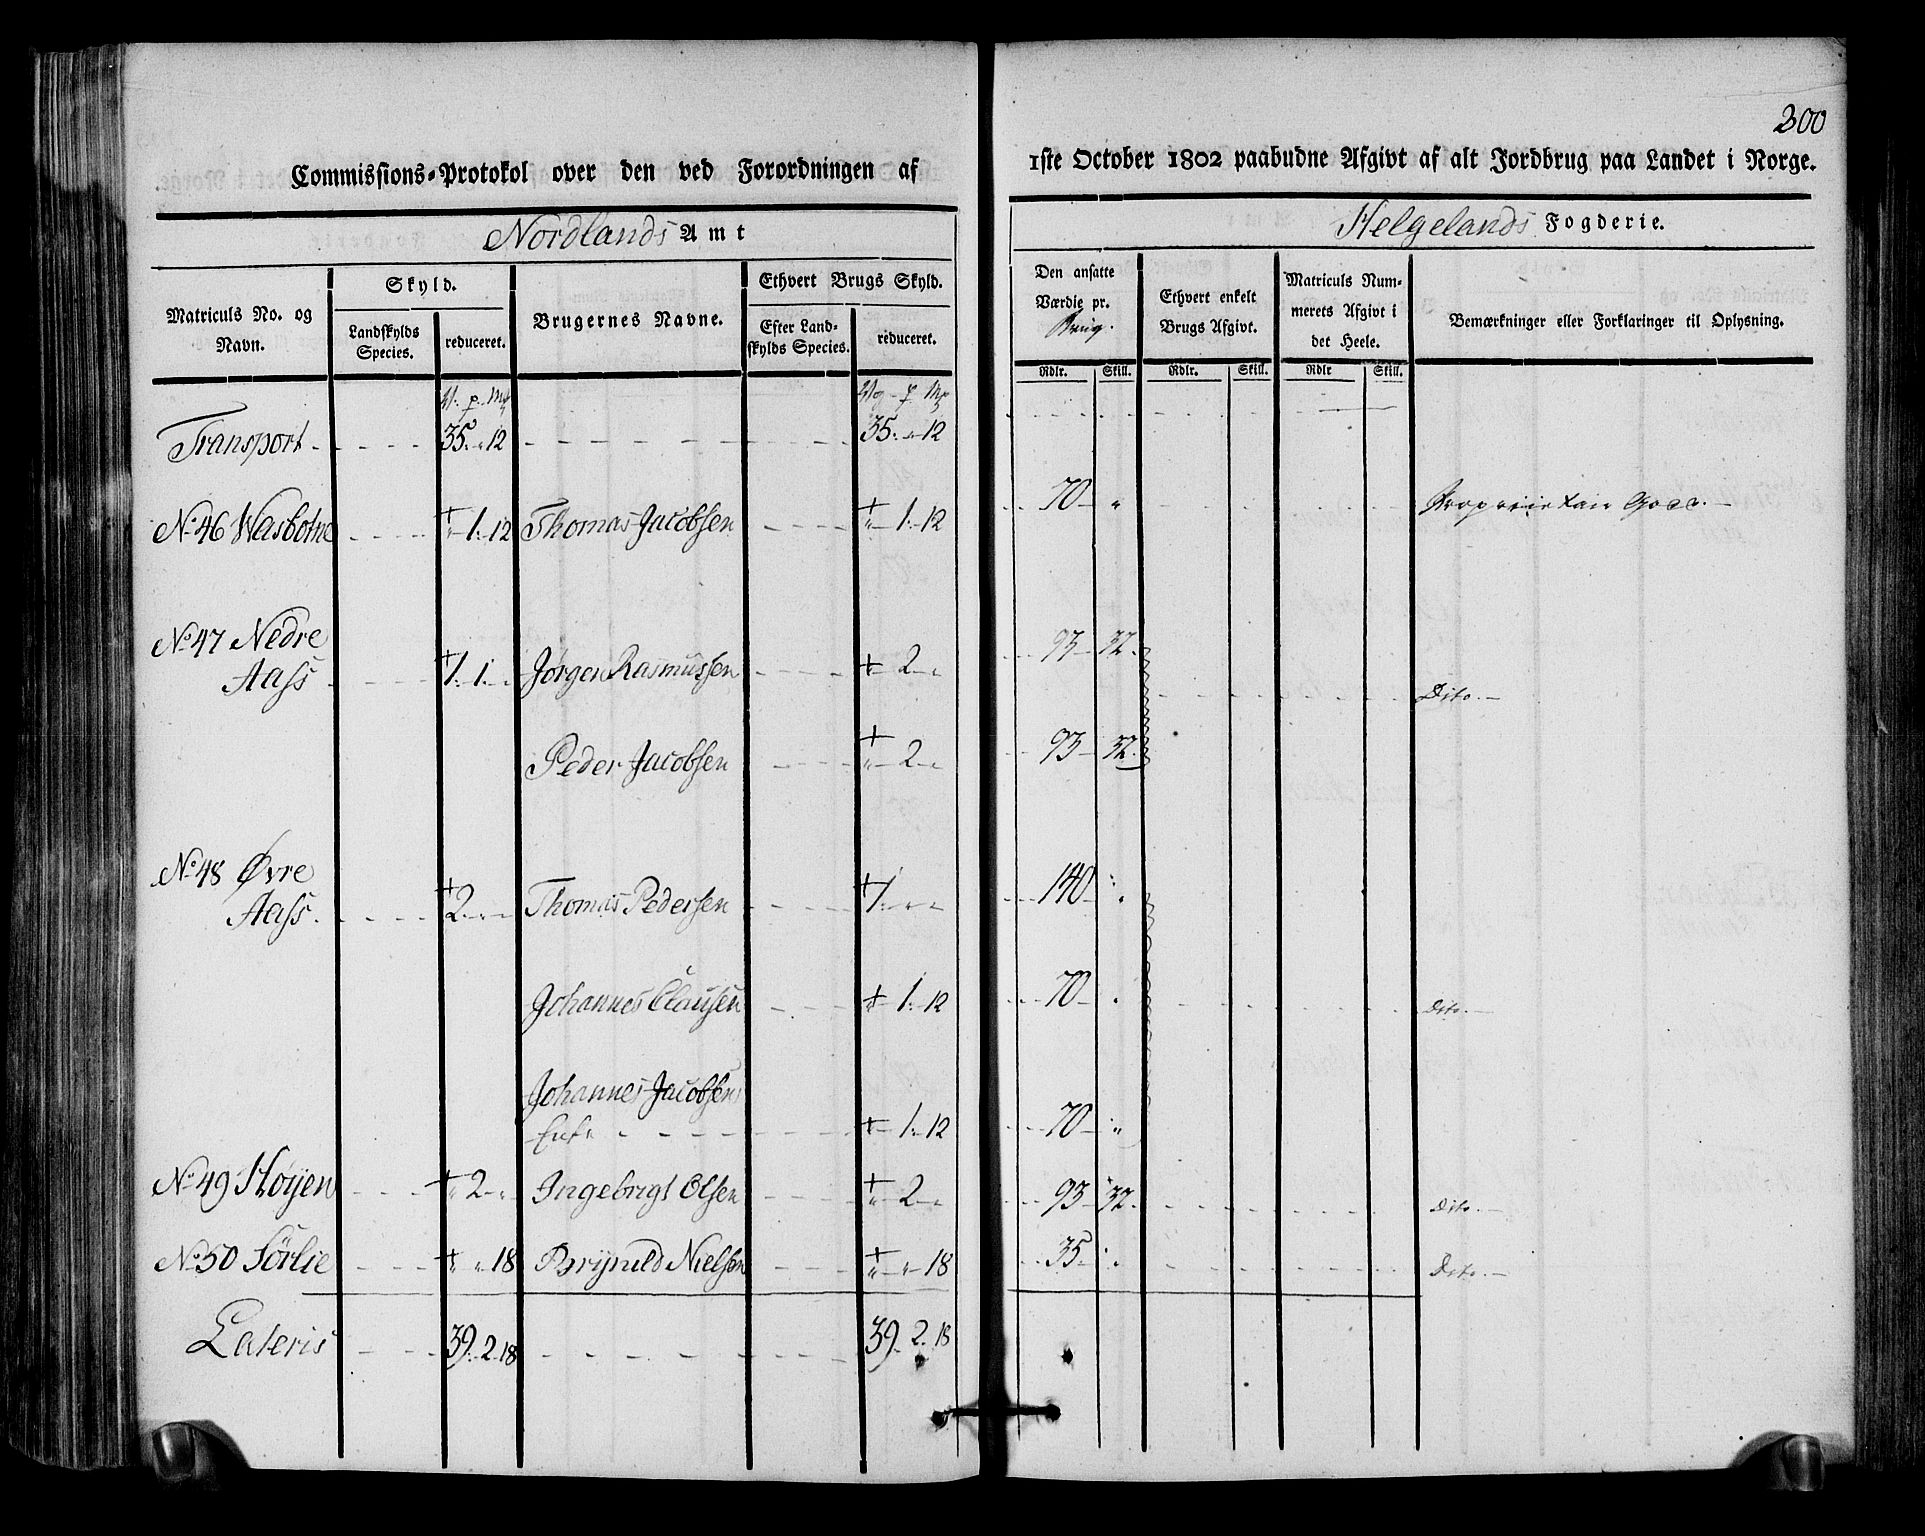 300
Commissions-Protokol over den ved Forordningen af
1ste October 1802 paabudne Afgivt af alt Jordbrug paa Landet i Norge.
Nordlands Amt
Helgelands Fogderie.
Matriculs No. og Navn.
Skyld.
Landskylds Species.
reduceret.
Brugernes Navne.
Ethvert Brugs Skyld.
Efter Landskylds Species.
reduceret.
Den ansatte Værdie pr. Brug.
Ethvert enkelt Brugs Afgivt.
Matriculs Nummerets Afgivt i det Heele.
Bemærkninger eller Forklaringer til Oplysning.
Rdlr. Skill. Rdlr. Skill. Rdlr Skill.
Transport - 35. " 12 - 35. " 12
No 46 Weisbotne " 1. 12 Thomas Jacobsen " 1. 12 70 " Proprietair Gods.
No 47 Nedre
Aass 1. 1. " Jørgen Rasmussen " 2 " 93 32. Dito.
Peder Jacobsen " 2 " 93 32.
No 48 Øvre
Aass. 2. " " Thomas Pedersen 1. " " 140 "
Johannes Clausen " 1. 12 70 " Dito.
Johannes Jacobsens
Enke " 1. 12 70 "
No 49 Høijen " 2 " Ingebrigt Olsen " 2 " 93 32. Dito.
No 50 Sørlie " " 18 Brijnild Nielsen " " 18 35 " Dito.
Lateris 39. 2. 18 39. 2. 18